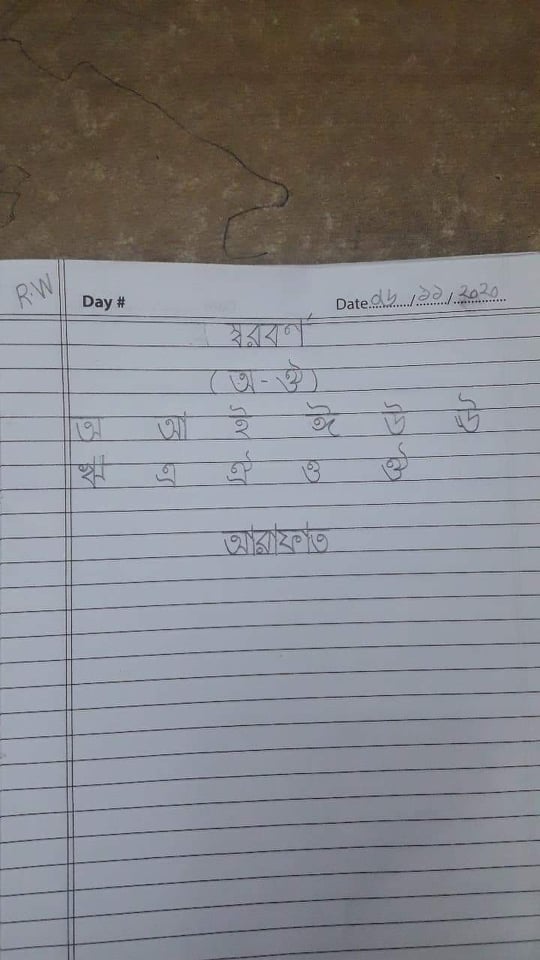 R.W
Day # Date ১৮/১১/২০২০
স্বরবর্ণ
(অ - ঔ)
অ আ ই ঈ উ ঊ
ঋ এ ঐ ও ঔ
আরাফাত